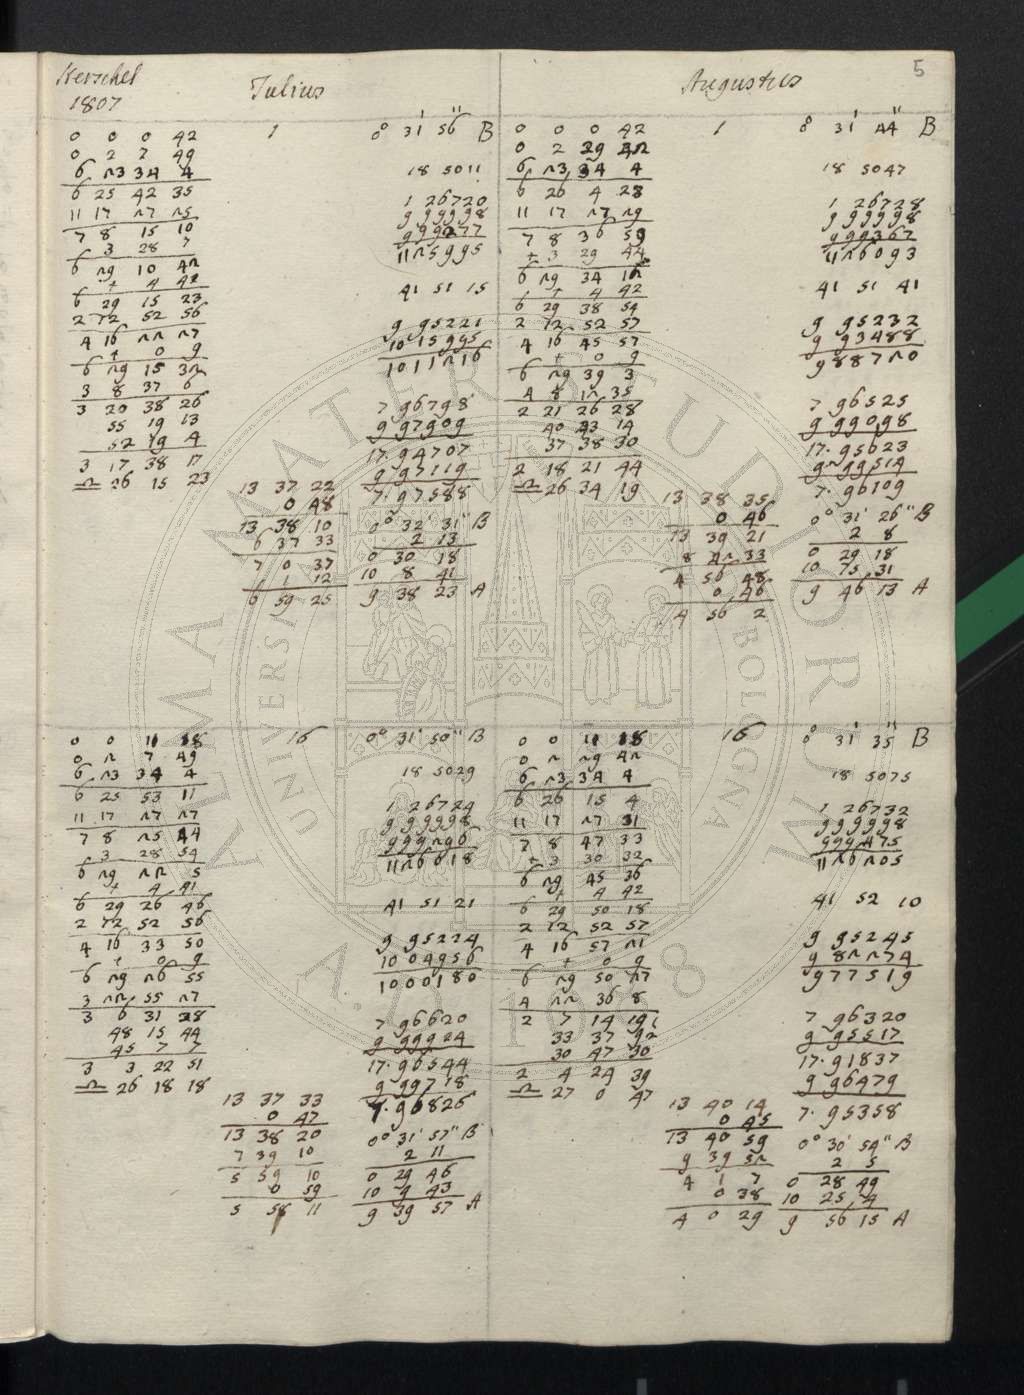 Herschel
1807
Julius
1
0° 31' 56" B
0 0 0 42
0 2 7 49
6 23 34 4
6 25 42 35
11 17 27 25
7 8 15 10
3 28 7
6 29 10 42
+ 4 42
6 29 15 23
2 12 52 56
4 16 22 27
+ 0 9
6 29 15 32
3 8 37 6
3 20 38 26
55 19 13
52 19 4
3 17 38 17
♎ 26 15 23
18 5011
1 26720
999998
999277
1125995
41 51 15
9 95221
10 15995
1011216
7 96798
9 97909
17.94707
9 97119
7.97588
13 37 22
0 48
13 38 10
6 37 33
7 0 37
1 12
6 59 25
0° 32' 31" B
2 13
0 30 18
10 8 41
9 38 23 A
Augustus
5
1
0° 31' 44" B
0 0 0 42
0 2 29 42
6 23 34 4
6 26 4 28
11 17 27 29
7 8 36 59
+ 3 29 44
6 29 34 12
+ 4 42
6 29 38 54
2 12 52 57
4 16 45 57
+ 0 9
6 29 39 3
4 8 12 35
2 21 26 28
40 43 14
37 38 30
2 18 21 44
♎ 26 34 19
18 5047
1 26728
999998
999367
1126093
41 51 41
9 95232
9 93488
988720
7 96525
9 99098
17.95623
9 99514
7.96109
13 38 35
0 46
13 39 21
8 42 33
4 56 48
0 46
4 56 2
0° 31' 26" B
2 8
0 29 18
10 15 31
9 46 13 A
16
0° 31' 50" B
0 0 11 38
0 2 7 49
6 23 34 4
6 25 53 11
11 17 27 27
7 8 25 44
3 28 54
6 29 22 5
+ 4 41
6 29 26 46
2 12 52 56
4 16 33 50
+ 0 9
6 29 26 55
3 22 55 27
3 6 31 28
48 15 44
45 7 7
3 3 22 51
♎ 26 18 18
18 5029
1 26724
999998
999296
1126018
41 51 21
9 95224
10 04956
1000180
7 96620
9 99924
17.96544
9 99718
7.96826
13 37 33
0 47
13 38 20
7 39 10
5 59 10
0 59
5 58 11
0° 31' 57" B
2 11
0 29 46
10 4 43
9 39 57 A
16
0° 31' 35" B
0 0 11 18
0 2 29 42
6 23 34 4
6 26 15 4
11 17 27 31
7 8 47 33
+ 3 30 32
6 29 45 36
+ 4 42
6 29 50 18
2 12 52 57
4 16 57 21
+ 0 9
6 29 50 27
4 22 36 8
2 7 14 19
33 37 92
30 47 30
2 4 24 39
♎ 27 0 47
18 5075
1 26732
999998
999475
1126205
41 52 10
9 95245
9 82274
977519
7 96320
9 95517
17.91837
9 96479
7.95358
13 40 14
0 45
13 40 59
9 39 52
4 1 7
0 38
4 0 29
0° 30' 54" B
2 5
0 28 49
10 25 4
9 56 15 A
ALMA MATER STUDIORUM
A.D. 1088